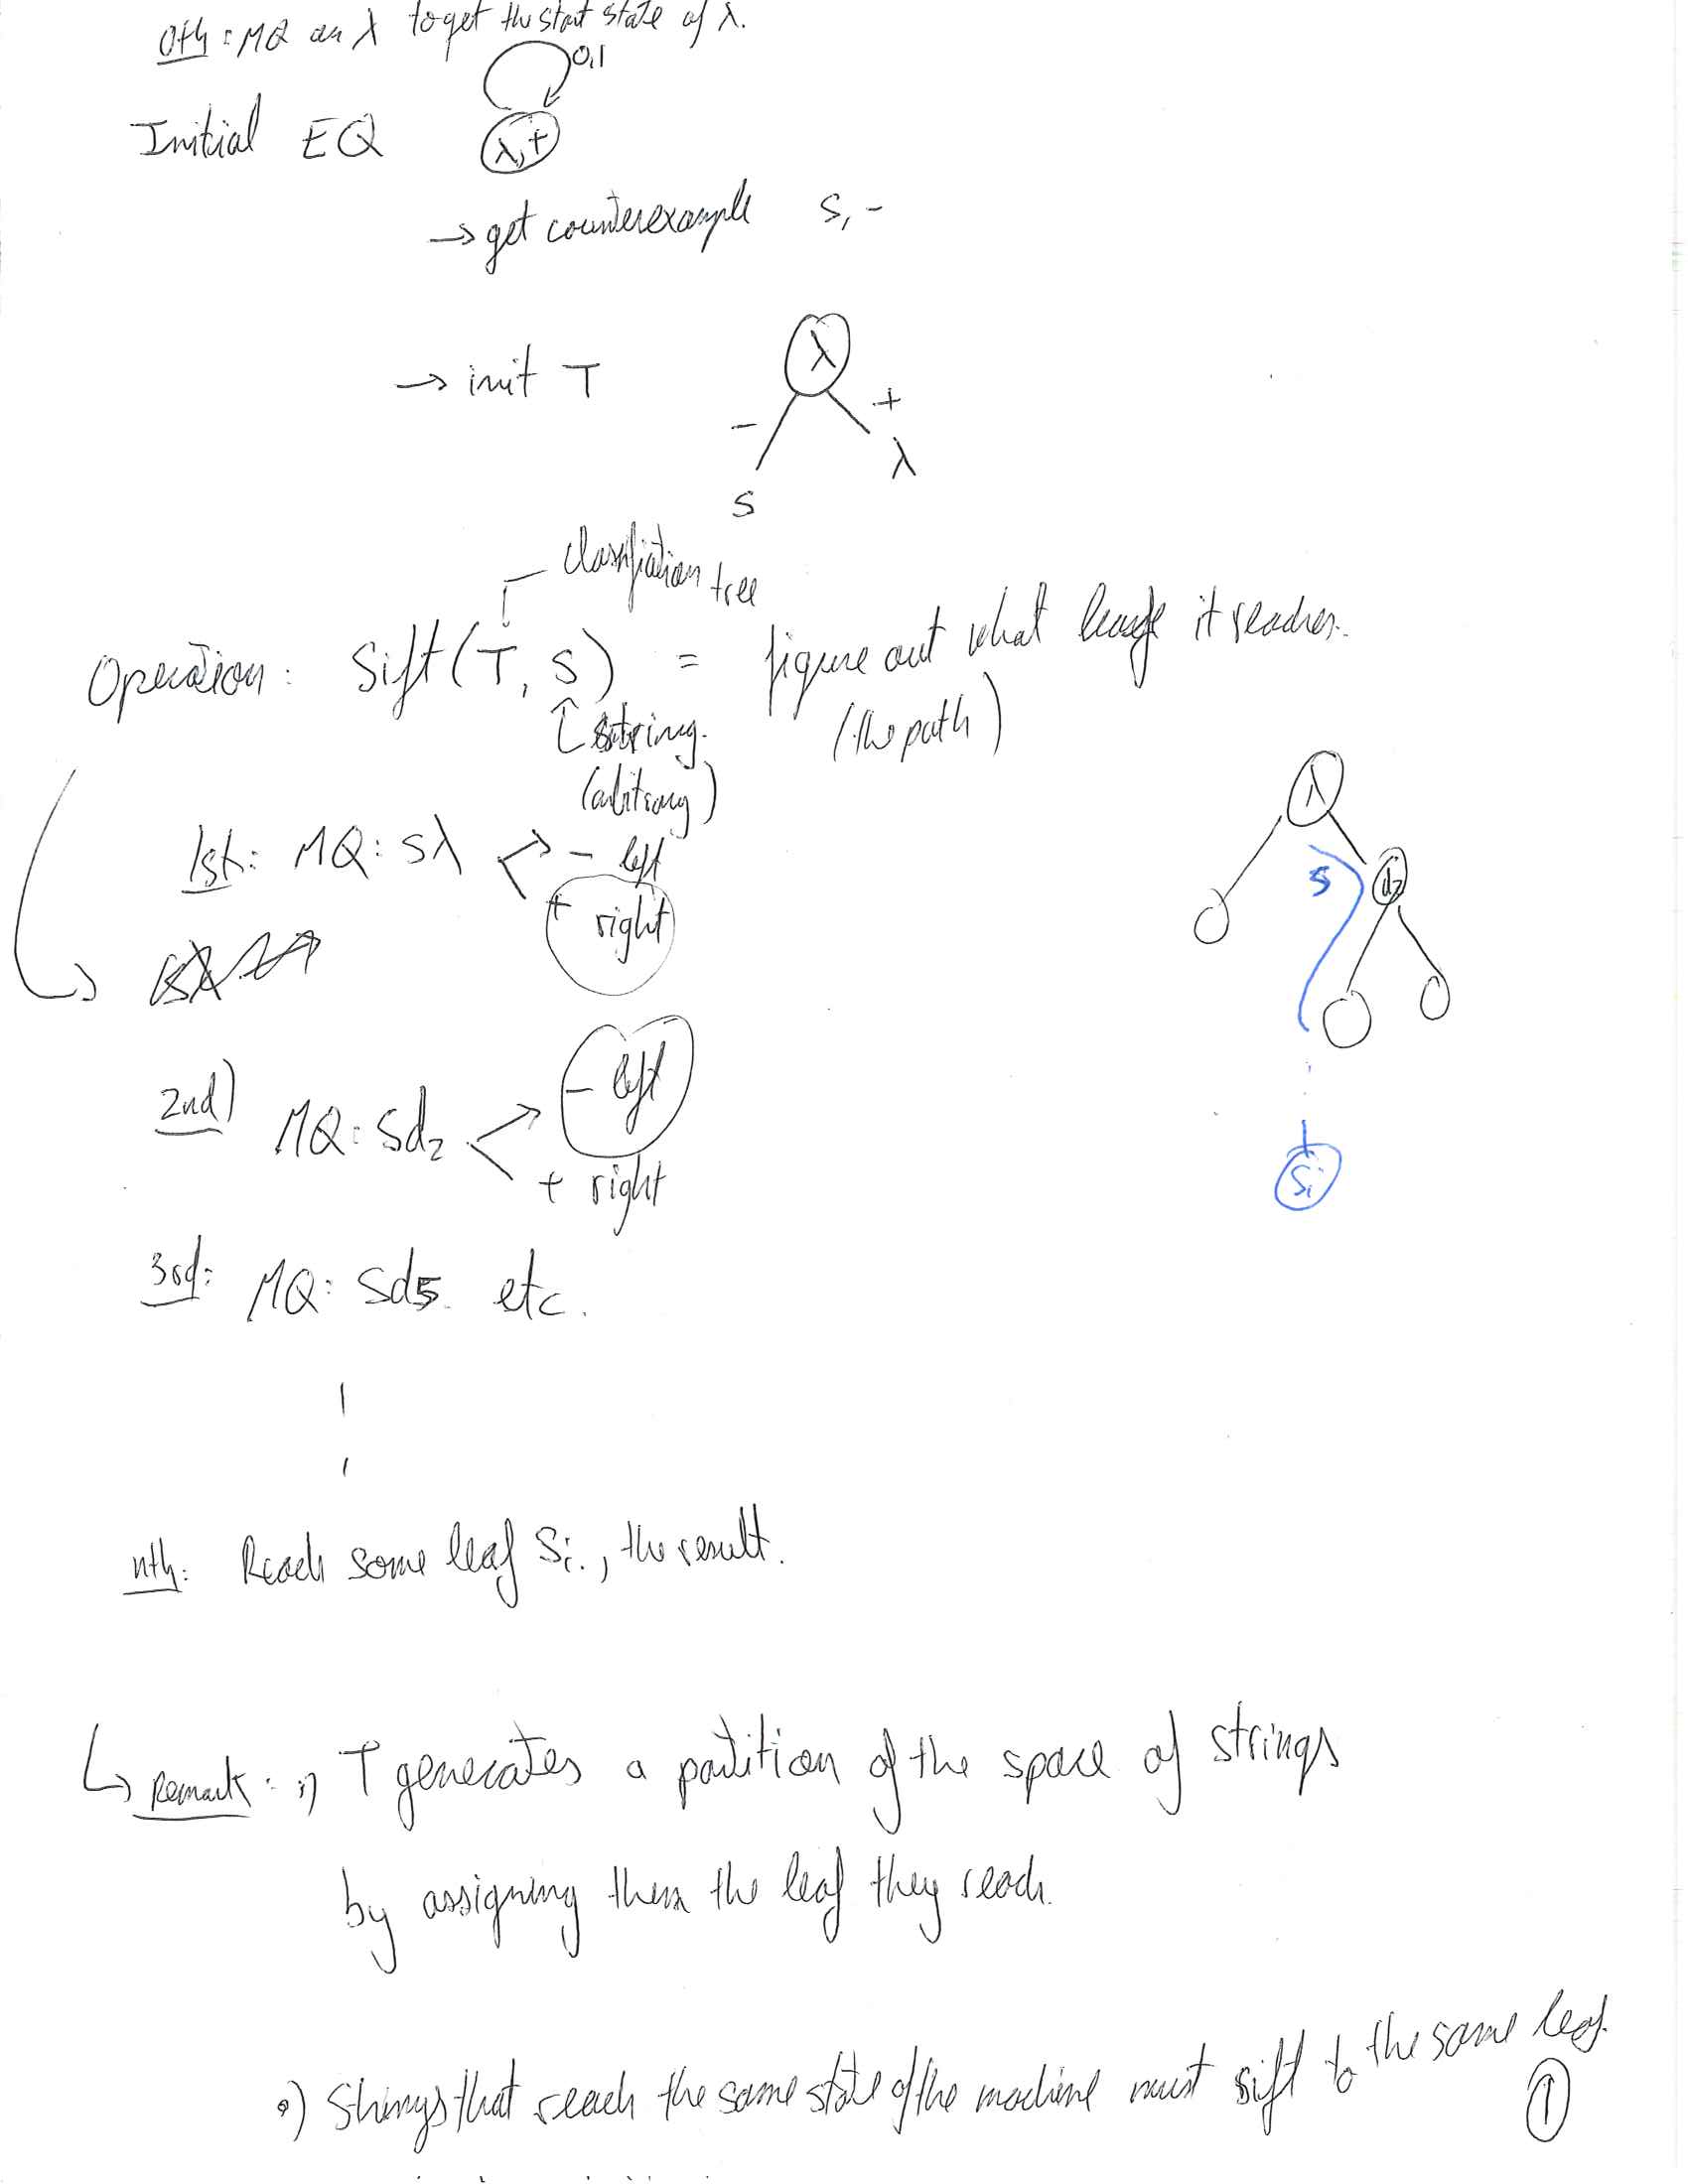 0th: MQ on λ to get the start state of λ.
0,1
Initial EQ
λ,+
→ get counterexample s, -
→ init T
λ
- +
λ
s
classification tree
Operation: Sift(T, S) = figure out what leaf it reaches.
string. (the path)
(arbitrary)
λ
1st: MQ: sλ - left
+ right
s
d2
2nd) MQ: sd2 - left
+ right
si
3rd: MQ: sd5 etc.
nth: Reach some leaf si., the result.
Remark: T generates a partition of the space of strings
by assigning them the leaf they reach.
Strings that reach the same state of the machine must sift to the same leaf.
1